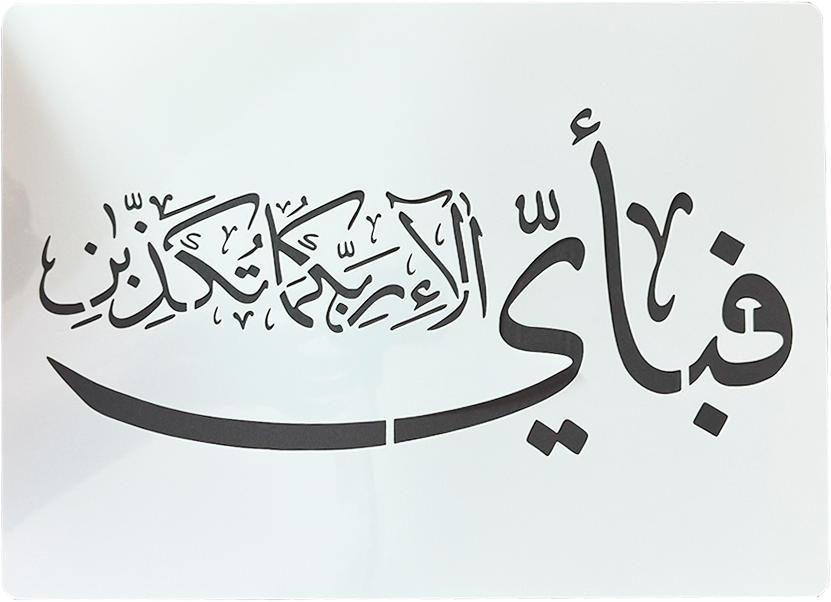 فبأيّ آلاءِ ربّكُما تُكَذِّبٰنِ